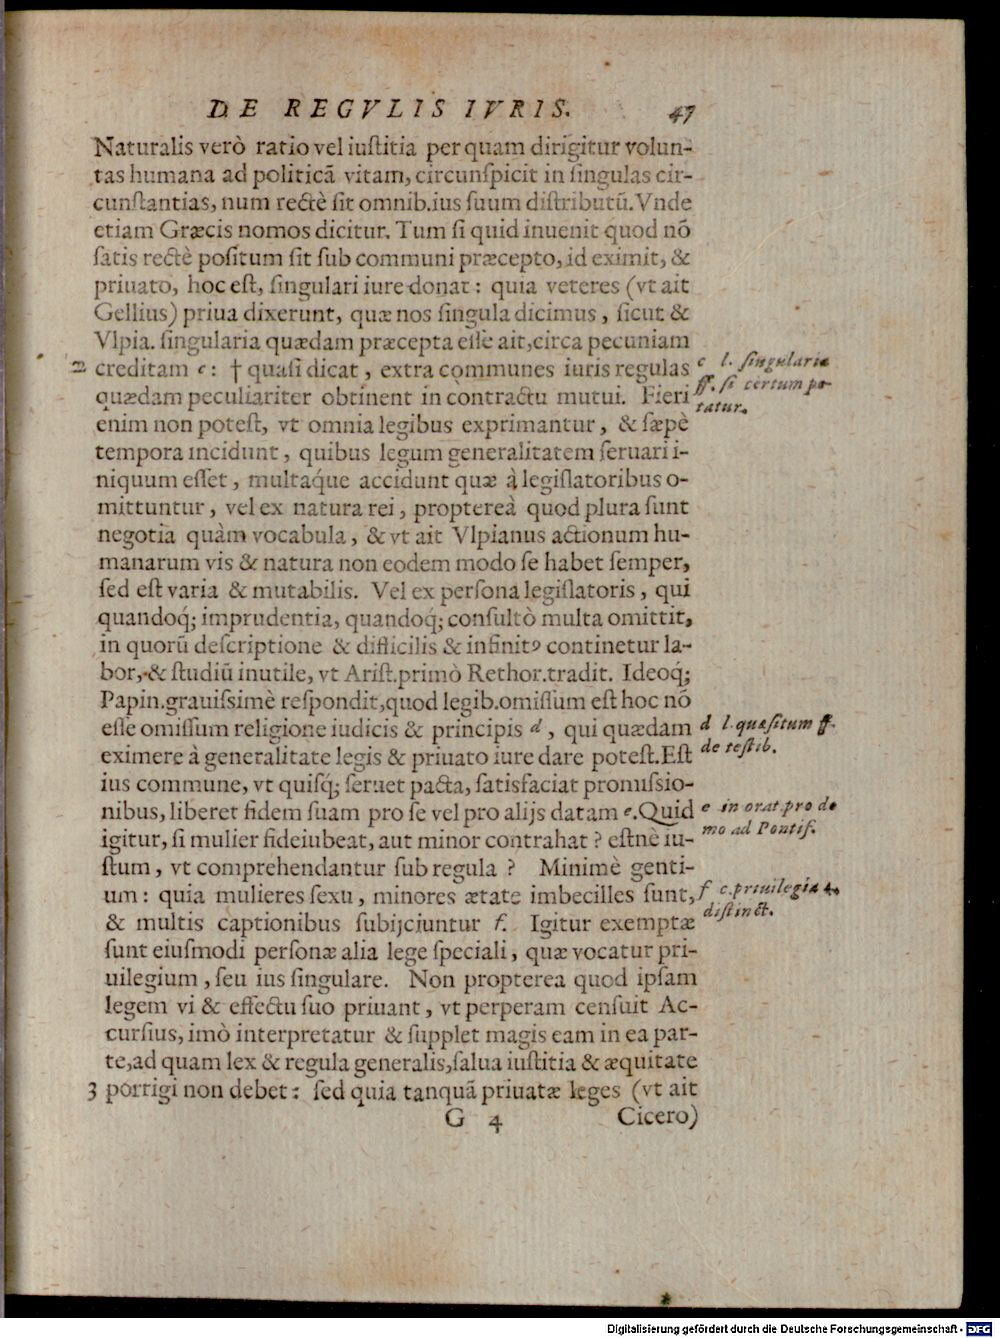 DE REGVLIS IVRIS. 47
Naturalis verò ratio vel iuſtitia per quam dirigitur volun-
tas humana ad politicã vitam, circunſpicit in ſingulas cir-
cunſtantias, num rectè ſit omnib. ius ſuum diſtributũ. Vnde
etiam Græcis nomos dicitur. Tum ſi quid inuenit quod nõ
ſatis rectè poſitum ſit ſub communi præcepto, id eximit, &
priuato, hoc eſt, ſingulari iure donat: quia veteres (vt ait
Gellius) priua dixerunt, quæ nos ſingula dicimus, ſicut &
Vlpia. ſingularia quædam præcepta eſſe ait, circa pecuniam
2 creditam c: † quaſi dicat, extra communes iuris regulas
quædam peculiariter obtinent in contractu mutui. Fieri
enim non poteſt, vt omnia legibus exprimantur, & ſæpè
tempora incidunt, quibus legum generalitatem ſeruari i-
niquum eſſet, multaq́ue accidunt quæ à legiſlatoribus o-
mittuntur, vel ex natura rei, proptereà quod plura ſunt
negotia quàm vocabula, & vt ait Vlpianus actionum hu-
manarum vis & natura non eodem modo ſe habet ſemper,
ſed eſt varia & mutabilis. Vel ex perſona legiſlatoris, qui
quandoq́; imprudentia, quandoq́; conſultò multa omittit,
in quorũ deſcriptione & difficilis & infinitꝰ continetur la-
bor, & ſtudiũ inutile, vt Ariſt. primò Rethor. tradit. Ideoq́;
Papin. grauiſsimè reſpondit, quod legib. omiſſum eſt hoc nõ
eſſe omiſſum religione iudicis & principis d, qui quædam
eximere à generalitate legis & priuato iure dare poteſt. Eſt
ius commune, vt quiſq́; ſeruet pacta, ſatisfaciat promiſsio-
nibus, liberet fidem ſuam pro ſe vel pro alijs datam e. Quid
igitur, ſi mulier fideiubeat, aut minor contrahat? eſtnè iu-
ſtum, vt comprehendantur ſub regula? Minimè genti-
um: quia mulieres ſexu, minores ætate imbecilles ſunt,
& multis captionibus ſubijciuntur f. Igitur exemptæ
ſunt eiuſmodi perſonæ alia lege ſpeciali, quæ vocatur pri-
uilegium, ſeu ius ſingulare. Non propterea quod ipſam
legem vi & effectu ſuo priuant, vt perperam cenſuit Ac-
curſius, imò interpretatur & ſupplet magis eam in ea par-
te, ad quam lex & regula generalis, ſalua iuſtitia & æquitate
3 porrigi non debet: ſed quia tanquã priuatæ leges (vt ait
G 4 Cicero)
c l. ſingularia
ff. ſi certum pe-
tatur.
d l. quæſitum ff.
de teſtib.
e in orat. pro do
mo ad Pontif.
f c. priuilegia 4.
diſtinct.
Digitalisierung gefördert durch die Deutsche Forschungsgemeinschaft - DFG